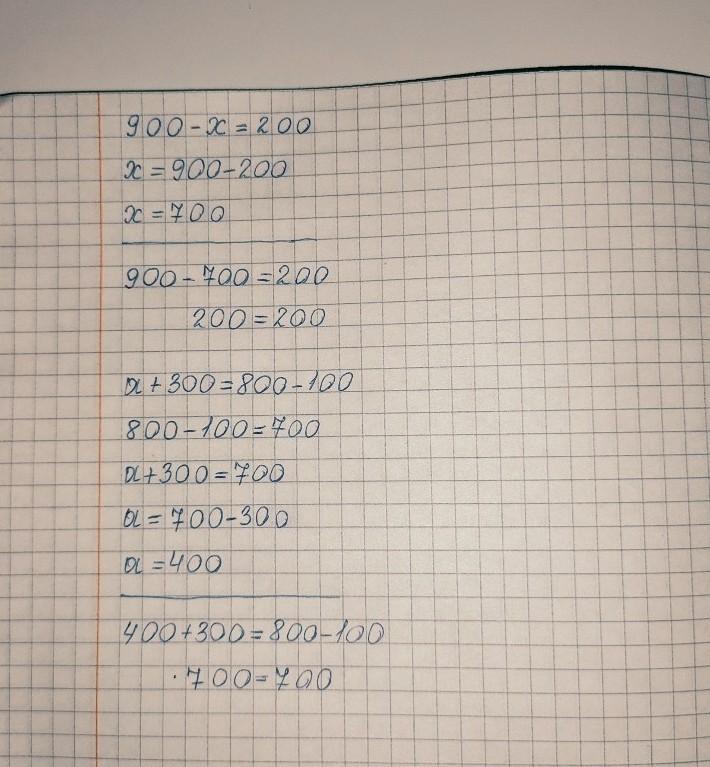 900-x=200
x=900-200
x=700
900-700=200
200=200
a+300=800-100
800-100=700
a+300=700
a=700-300
a=400
400+300=800-100
700=700